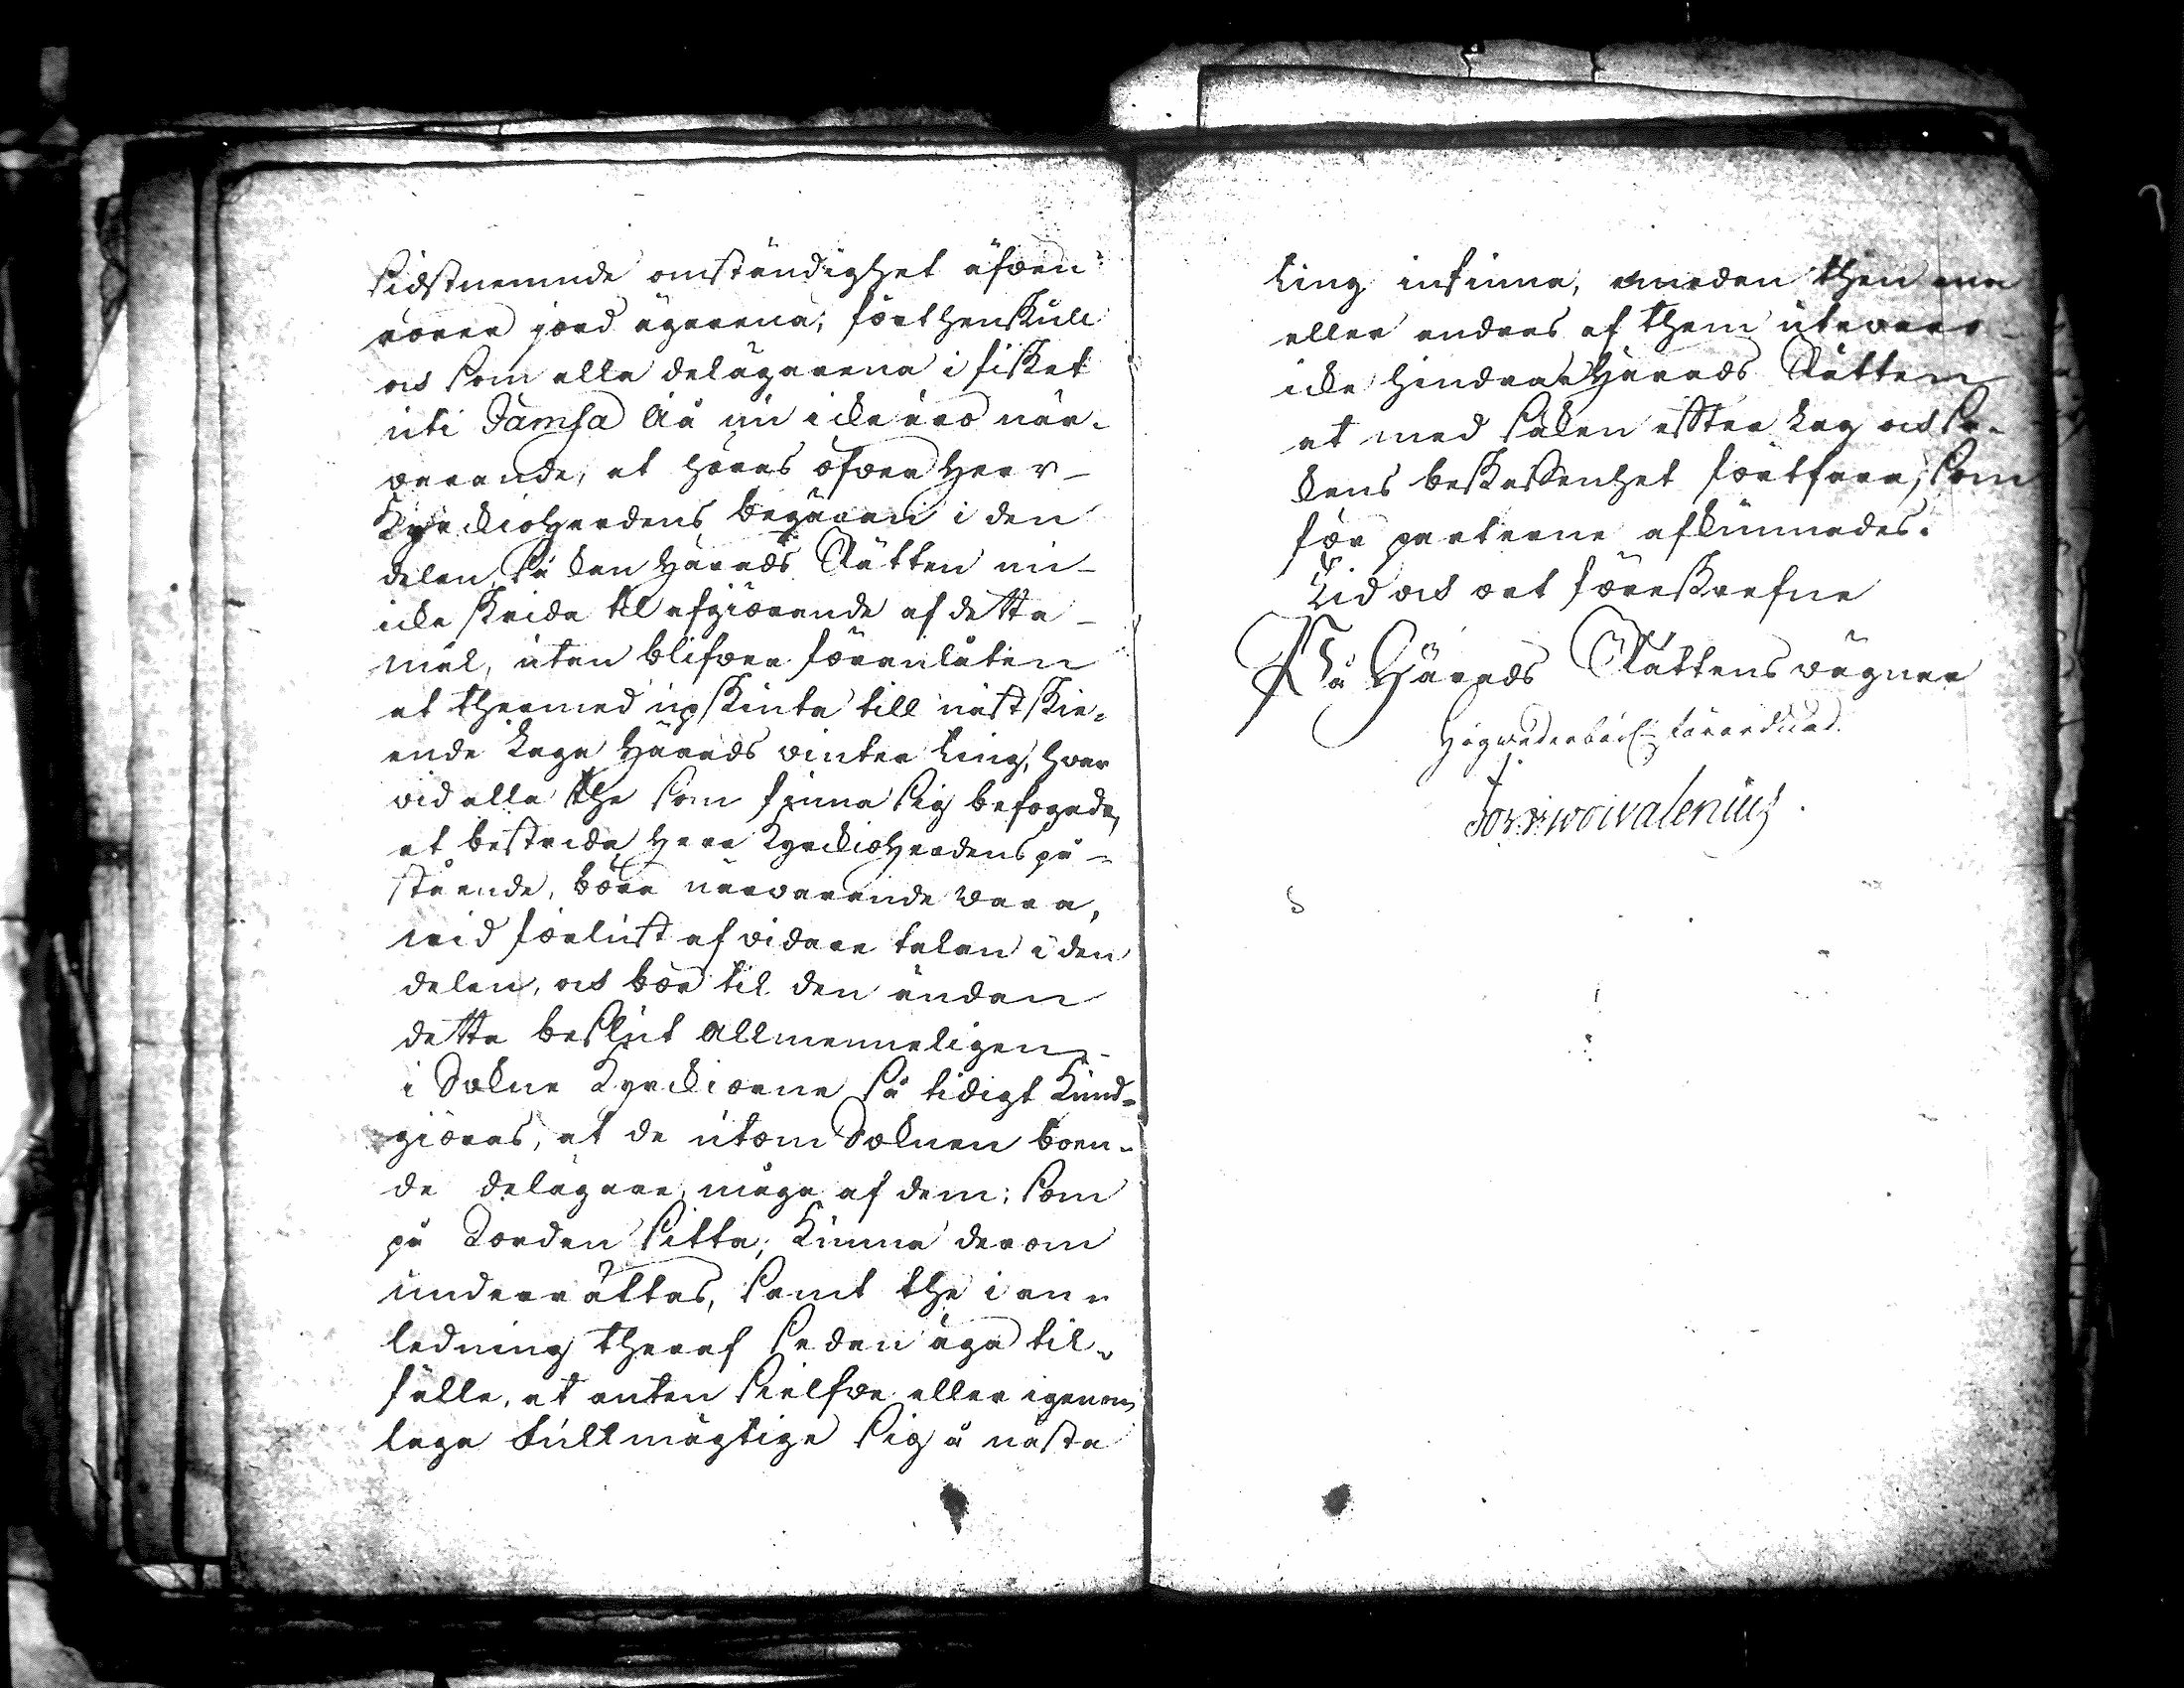 sidstnemnde omständighet äfven
rörer jord ägarena; förthenskull
och som alla delägarena i fisket
uti Jämsä Åå nu icke äro när-
varande, at höras öfver Herr
Kyrckioherdens begäran i den
delen, så kan Härads Rätten nu
icke skrida til afgiörande af detta
mål, utan blifver föranlåten
at thermed upskiuta till nästskie-
ende Laga Härads vinter ting, hvar
vid alla the som finna sig befogade,
at bestrida Herr Kyrckioherdens på-
stående, böra närvarande vara,
wid förlust af vidare talan i den
delen, och bör til den ändan
detta beslut allmenneligen
i Sokne Kyrckiorne så tidigt kund-
giöras, at de utom Soknen boen-
de delägare, måga af dem; som
på Jorden sitta, kunna derom
underrättas, samt the i an-
ledning theraf sedan äga til-
fälle, at antan sielfve eller igenom
laga fullmägtige sig å nästa
ting infinna, medan then ena
eller andras af them utevaro
icke hindrar Härads Rätten
at med saken effter Lag och sa-
kens beskaffenhet fortfara; som
för parterne afkunnades.
Tid och ort föreskrefne
På Härads Rättens vägnar